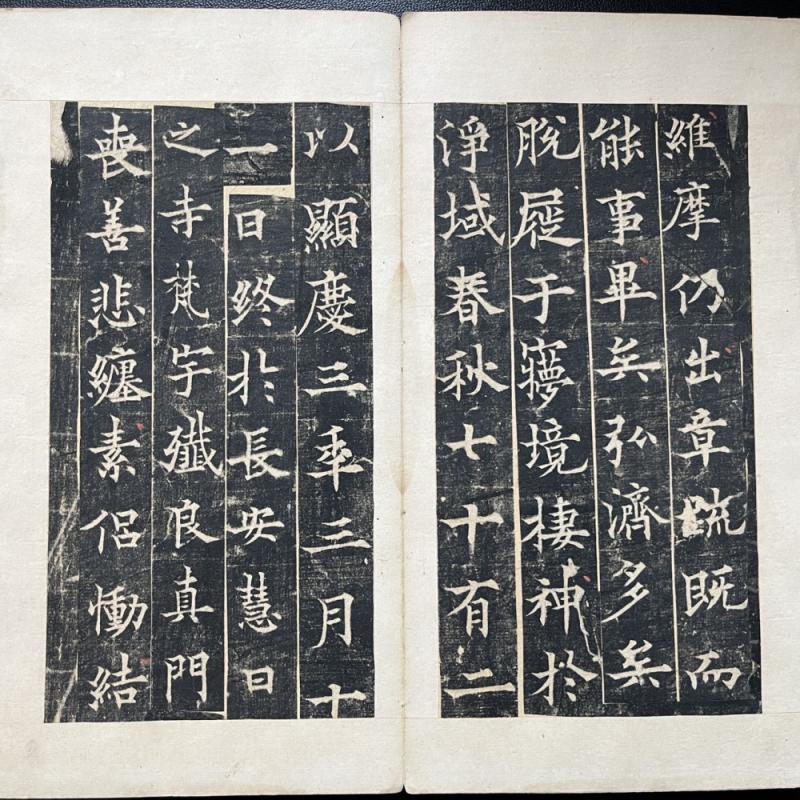 維摩仍出章䟽既而
能事畢矣弘濟多矣
脫屣于㝱境棲神於
淨域春秋七十有二
以顯慶三年三月十
一日終於長安慧日
之寺梵宇殱良真門
喪善悲纏素侶慟結